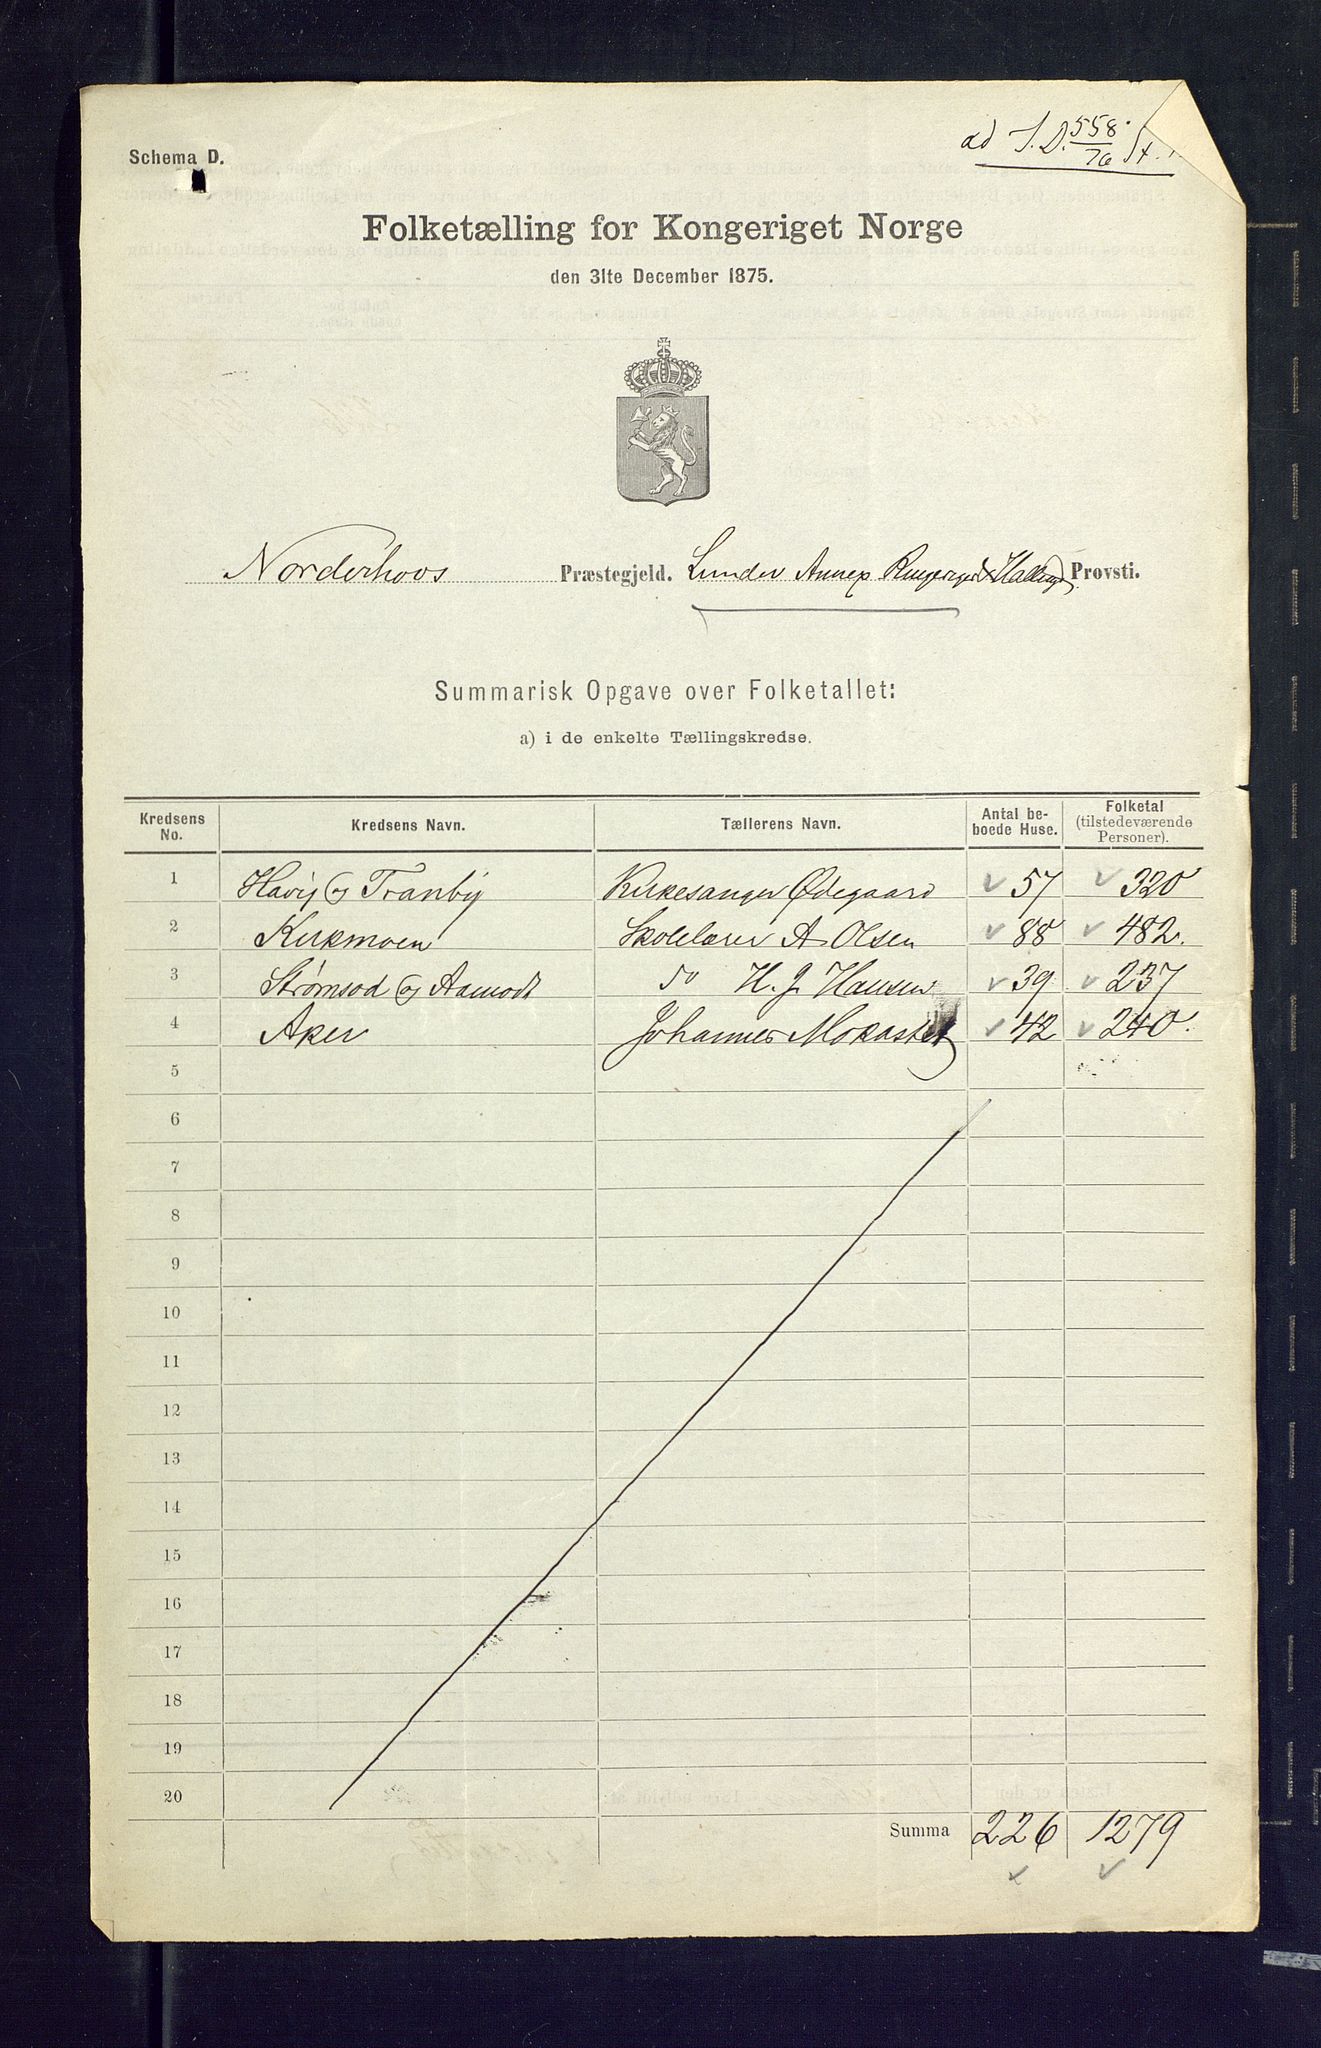 ad J. D. 558/76 St.
Schema D.
Folketælling for Kongeriget Norge
den 31te December 1875.
Norderhovs Præstegjeld. Lunder Annex Ringerige & Hallingd Provsti.
Summarisk Opgave over Folketallet:
a) i de enkelte Tællingskredse.
Kredsens No. Kredsens Navn. Tællerens Navn. Antal beboede Huse. Folketal (tilstedeværende Personer).
1 Havig og Tranby Kirkesanger Ødegaard 57 320
2 Kirkmoen Skolelærer A Olsen 88 482.
3 Strømsod og Aamodt do H. J. Hansen 39 237
4 Aker Johannes 42 240.
5
6
7
8
9
10
11
12
13
14
15
16
17
18
19
20
Summa 226 1279